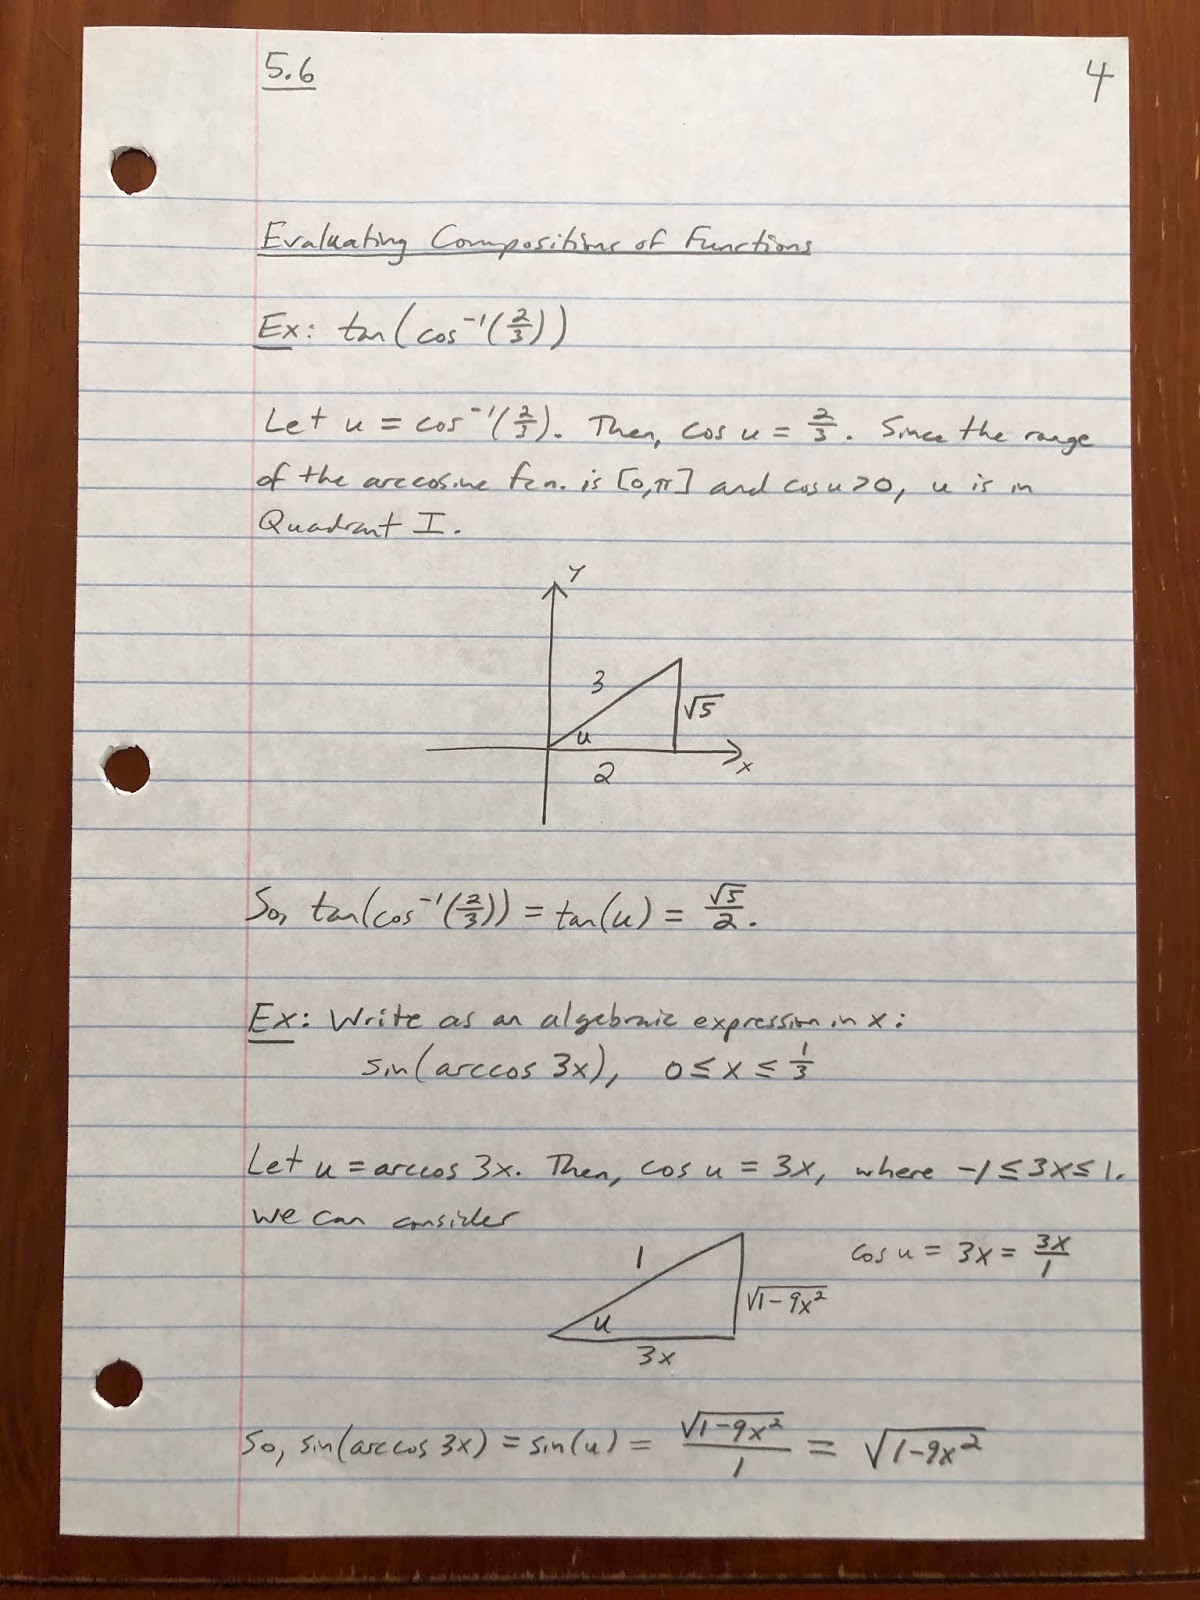 5.6 4
Evaluating Compositions of Functions
Ex: tan(cos⁻¹(2/3))
Let u = cos⁻¹(2/3). Then, cos u = 2/3. Since the range
of the arccosine fcn. is [0,π] and cos u > 0, u is in
Quadrant I.
y
3
√5
u
x
2
So, tan(cos⁻¹(2/3)) = tan(u) = √5/2.
Ex: Write as an algebraic expression in x:
sin(arccos 3x), 0 ≤ x ≤ 1/3
Let u = arccos 3x. Then, cos u = 3x, where -1 ≤ 3x ≤ 1.
We can consider
1 cos u = 3x = 3x/1
√(1-9x²)
u
3x
So, sin(arccos 3x) = sin(u) = √(1-9x²)/1 = √(1-9x²)